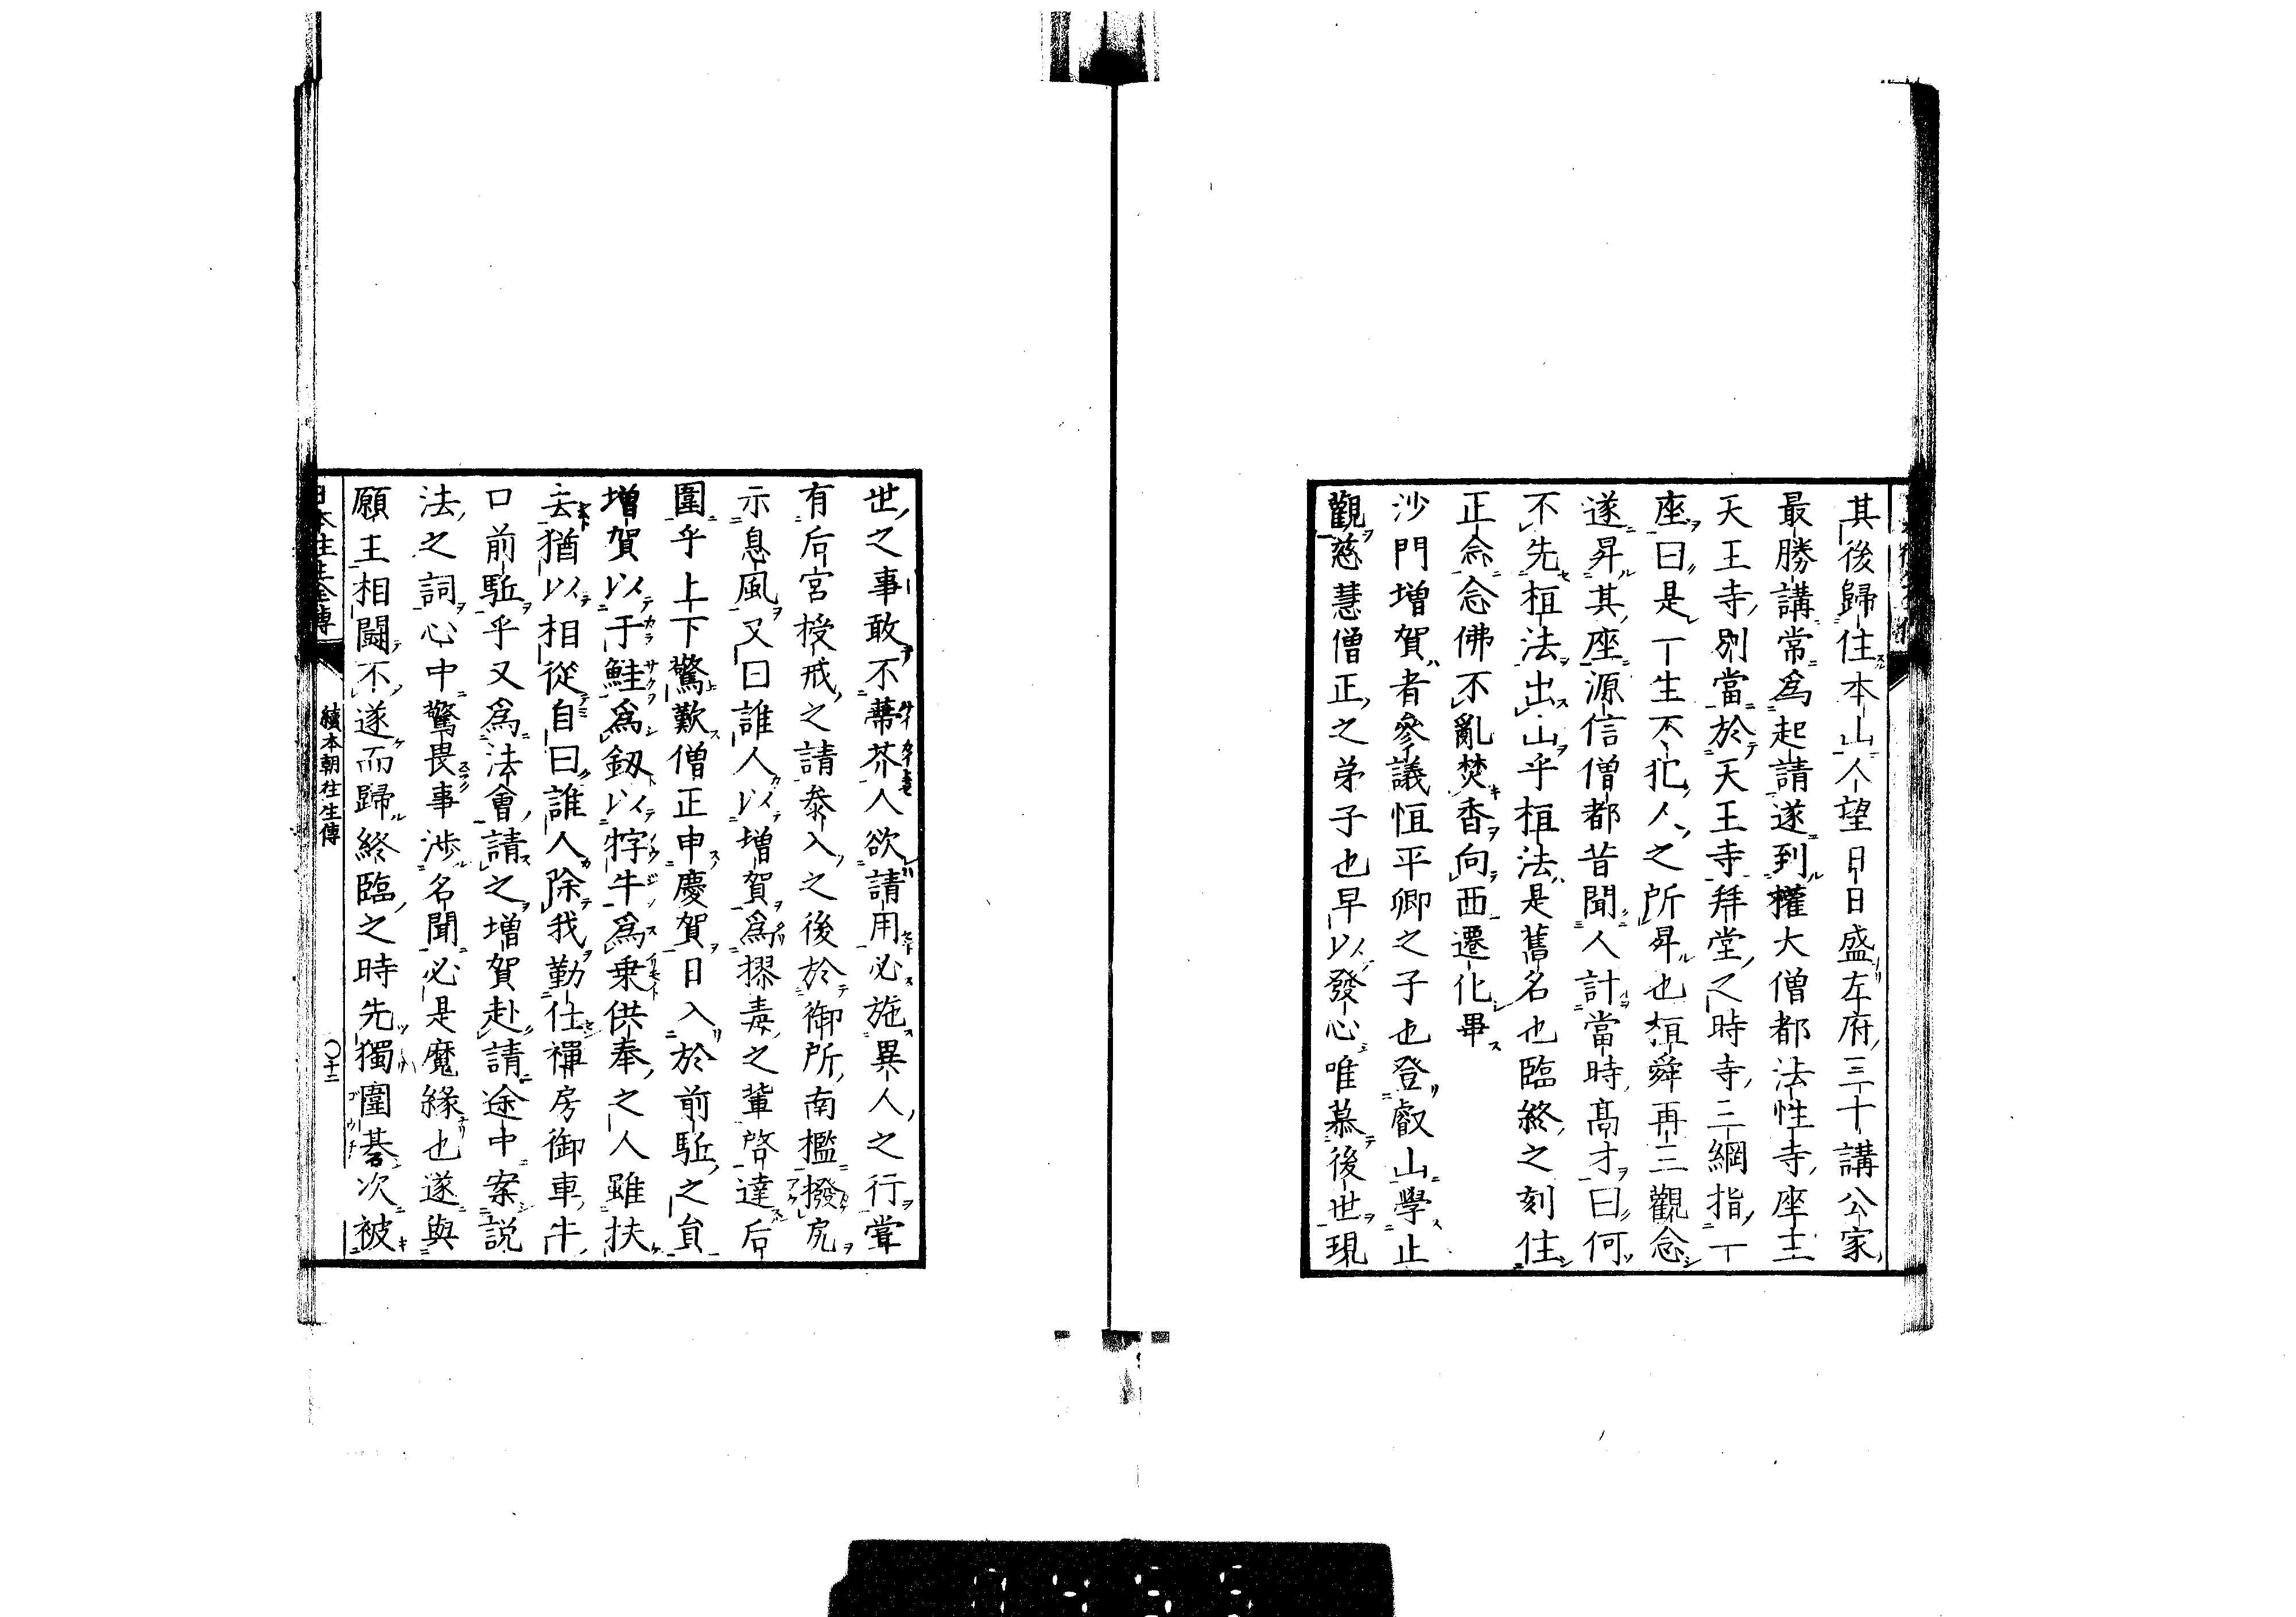 其後歸住本山人望日日盛左府三十講公家
最勝講常爲起請遂到權大僧都法性寺座主
天王寺別當於天王寺拜堂之時寺三綱指一
座曰是一生不犯人之所昇也桓舜再三觀念
遂昇其座源信僧都昔聞人計當時高才曰何
不先桓法出山乎桓法是舊名也臨終之刻住
正念念佛不亂焚香向西遷化畢
沙門增賀者參議恒平卿之子也登叡山學止
觀慈慧僧正之弟子也早以發心唯慕後世現
世之事敢不蔕芥人欲請用必施異人之行甞
有后宮授戒之請叅入之後於御所南檻撥尻
示息風又曰誰人以增賀爲摎毒之輩啓達后
圍乎上下驚歎僧正申慶賀日入於前駈之貟
增賀以于鮭爲釼以牸牛爲乗供奉之人雖扶
去猶以相從自曰誰人除我勤仕禪房御車牛
口前駈乎又爲法會請之增賀赴請途中案説
法之詞心中驚畏事渉名聞必是魔緣也遂與
願王相鬪不遂而歸終臨之時先獨圍碁次被
日本往生全傳
續本朝往生傳
〇十二